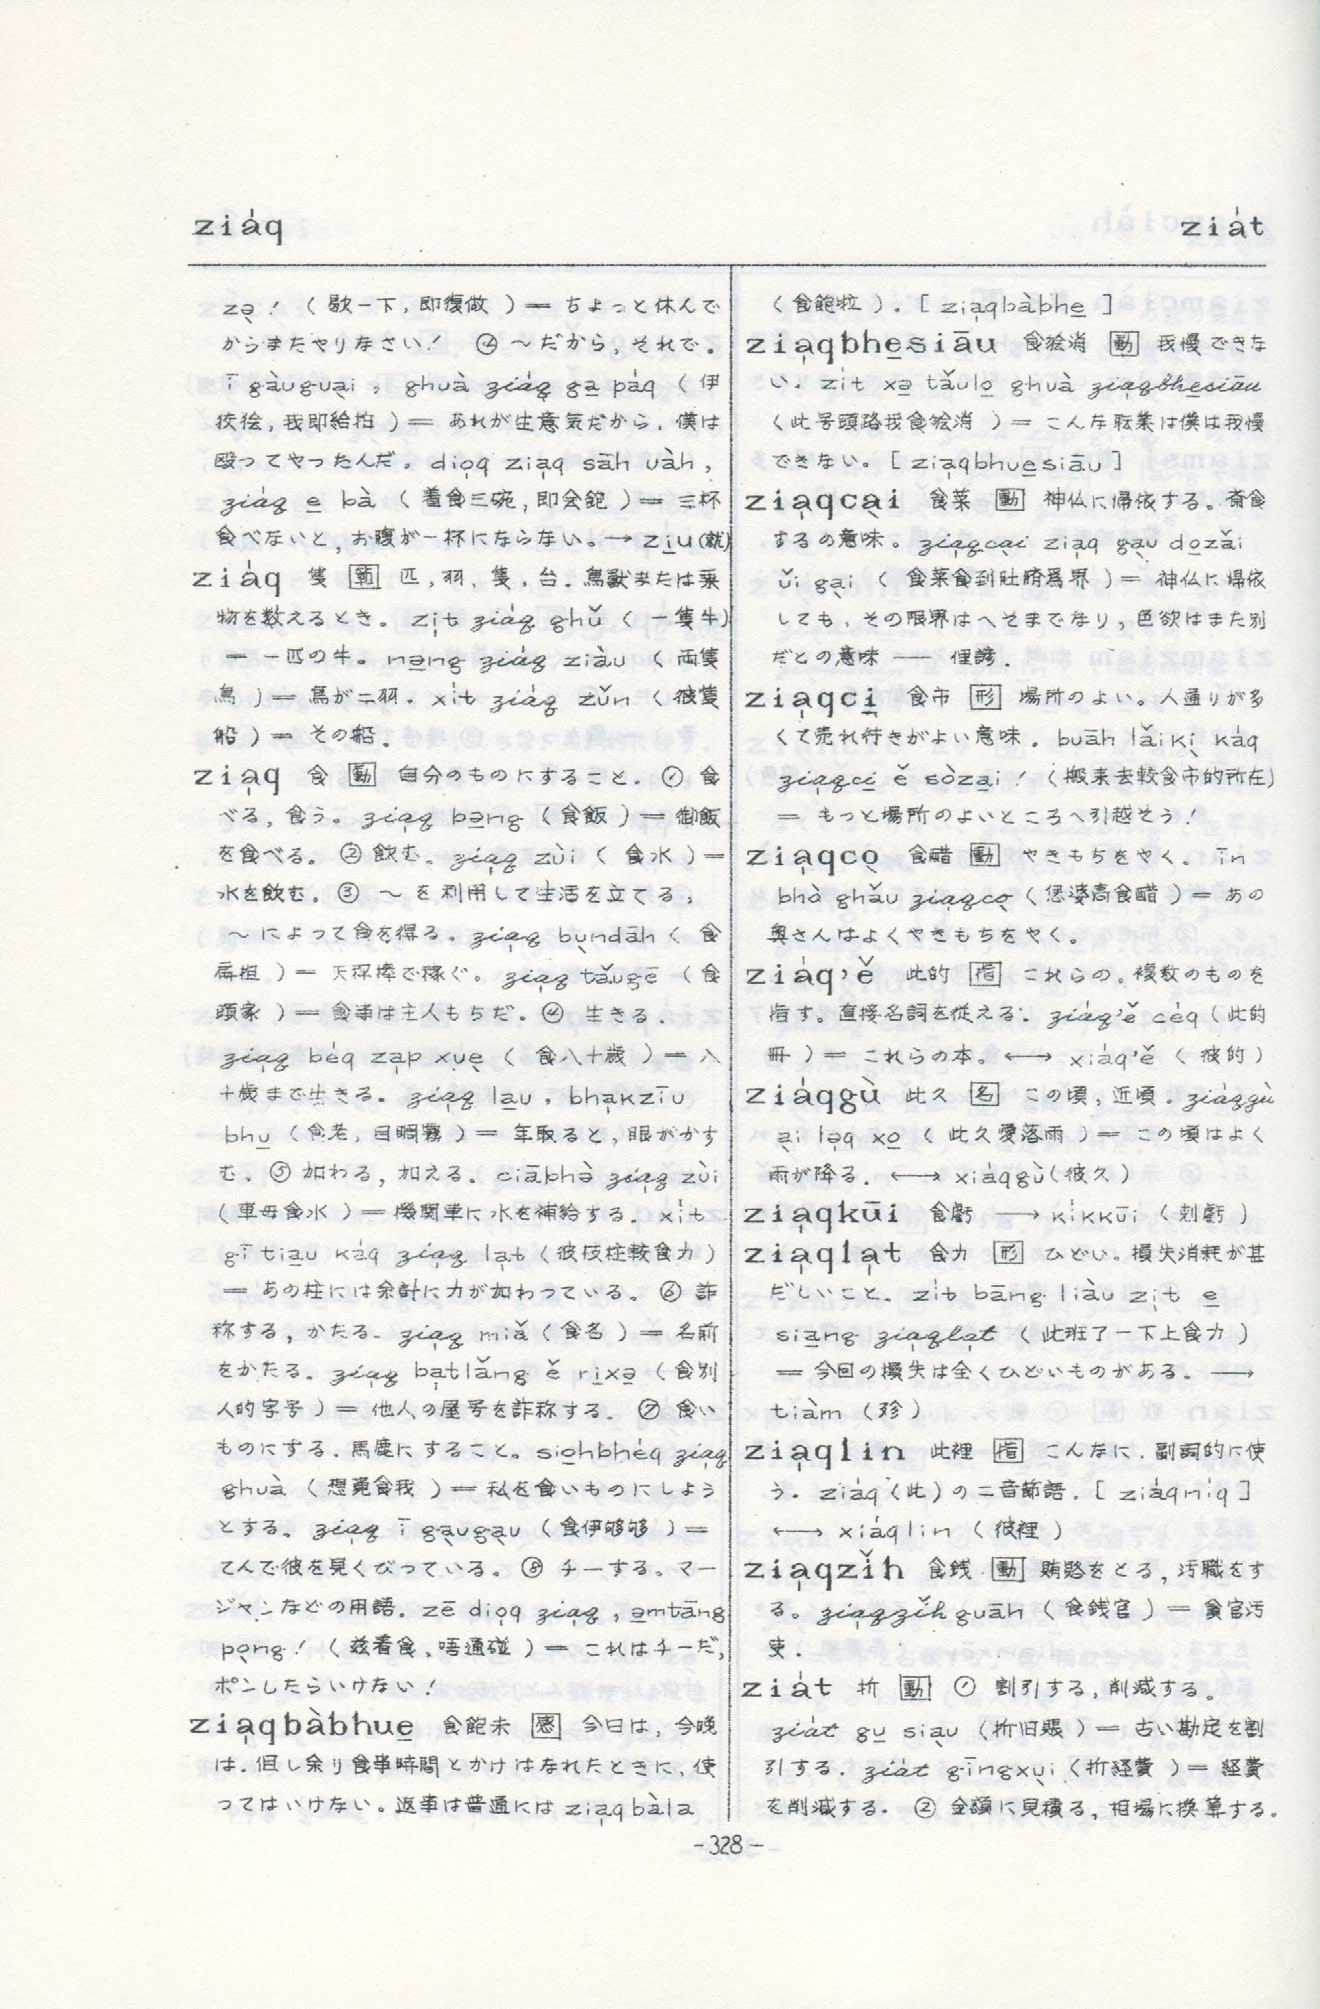 ziáq
ziát
zə̣! (歇一下,即復做)＝ちょっと休んで
からまたやりなさい! ④ ～だから,それで。
ī gàuguại, ghuà ziáq ga̱ páq (伊
狡獪,我即給拍)＝あれが生意気だから,僕は
殴ってやったんだ。diọq ziạq sāh uàh,
ziáq e̱ bà (着食三碗,即会飽)＝三杯
食べないと,お腹が一杯にならない。→ zi̱u(就)
ziáq 隻 匹,羽,隻,台。鳥獣または乗
物を数えるとき。zịt ziáq ghǔ (一隻牛)
＝一匹の牛。nə̱ng ziáq ziàu (両隻
鳥)＝鳥が二羽。xít ziáq zǔn (彼隻
船)＝その船。
ziạq 食 動 自分のものにすること。① 食
べる,食う。ziạq bə̱ng (食飯)＝御飯
を食べる。② 飲む。ziạq zùi (食水)＝
水を飲む。③ ～を利用して生活を立てる,
～によって食を得る。ziạq bụndāh (食
扁担)＝天秤棒で稼ぐ。ziạq tǎugē (食
頭家)＝食事は主人もちだ。④ 生きる。
ziạq béq zạp xụẹ (食八十歳)＝八
十歳まで生きる。ziạq la̱u, bhạkziū
bhu̱ (食老,目睭霧)＝年取ると,眼がかす
む。⑤ 加わる,加える。ciābhə̀ ziạq zùi
(車母食水)＝機関車に水を補給する。xít
gī tia̱u káq ziạq lạt (彼枝柱較食力)
＝あの柱には余計に力が加わっている。⑥ 詐
称する,かたる。ziạq miǎ (食名)＝名前
をかたる。ziạq bạtlǎng ě ri̱xə̱ (食別
人的字号)＝他人の屋号を詐称する。⑦ 食い
ものにする,馬鹿にすること。sio̱hbhéq ziạq
ghuà (想覓食我)＝私を食いものにしよう
とする。ziạq ī gạugạu (食伊够够)＝
てんで彼を見くびっている。⑧ チーする。マー
ジャンなどの用語。zē diọq ziạq, ə̱mtāng
pọng! (玆着食,唔通碰)＝これはチーだ,
ポンしたらいけない!
ziạqbàbhue̱ 食飽未 感 今日は,今晩
は。但し余り食事時間とかけはなれたときに,使
ってはいけない。返事は普通には ziạqbàla
(食飽啦)。[ziạqbàbhe̱]
ziạqbhe̱siāu 食獪消 動 我慢できな
い。zít xə̱ tǎulo̱ ghuà ziạqbhe̱siāu
(此号頭路我食獪消)＝こんな職業は僕は我慢
できない。[ziạqbhue̱siāu]
ziạqcại 食菜 動 神仏に帰依する。斎食
するの意味。ziạqcại ziạq gạu do̱zǎi
ǔi gại (食菜食到肚臍為界)＝神仏に帰依
しても,その限界はへそまでなり,色欲はまた別
だとの意味 ― 俚諺。
ziạqci̱ 食市 形 場所のよい。人通りが多
くて売れ行きがよい意味。buāh lǎikị káq
ziạqci̱ ě sòza̱i! (搬来去較食市的所在)
＝もっと場所のよいところへ引越そう!
ziạqcọ 食醋 動 やきもちをやく。īn
bhə̀ ghǎu ziạqcọ (𪜶婆高食醋)＝あの
奥さんはよくやきもちをやく。
ziáq'ě 此的 指 これらの。複数のものを
指す。直接名詞を従える。ziáq'ě céq (此的
冊)＝これらの本。⟷ xiáq'ě (彼的)
ziáqgù 此久 名 この頃,近頃。ziáqgù
ại lə̣q xo̱ (此久愛落雨)＝この頃はよく
雨が降る。⟷ xiáqgù(彼久)
ziạqkūi 食虧 → kíkkūi (剋虧)
ziạqlạt 食力 形 ひどい。損失消耗が甚
だしいこと。zít bāng liàu zịt e̱
sia̱ng ziạqlạt (此班了一下上食力)
＝今回の損失は全くひどいものがある。→
tiàm (殄)
ziạqlin 此裡 指 こんなに。副詞的に使
う。ziáq (此)の二音節語。[ziáqníq]
⟷ xiáqlin (彼裡)
ziạqzǐh 食銭 動 賄賂をとる,汚職をす
る。ziạqzǐh guāh (食銭官)＝貪官汚
吏。
ziát 折 動 ① 割引する,削減する。
ziát gu̱ siạu (折旧賬)＝古い勘定を割
引する。ziát gīngxụi (折経費)＝経費
を削減する。② 金額に見積る,相場に換算する。
-328-